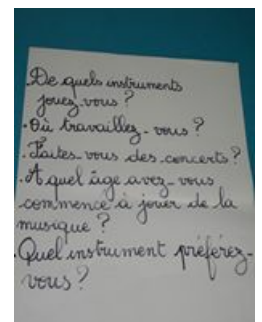 . De quels instruments
jouez-vous ?
. Où travaillez-vous ?
. Faites-vous des concerts ?
. A quel âge avez-vous
commence à jouer de la
musique ?
. Quel instrument préférez-
vous ?